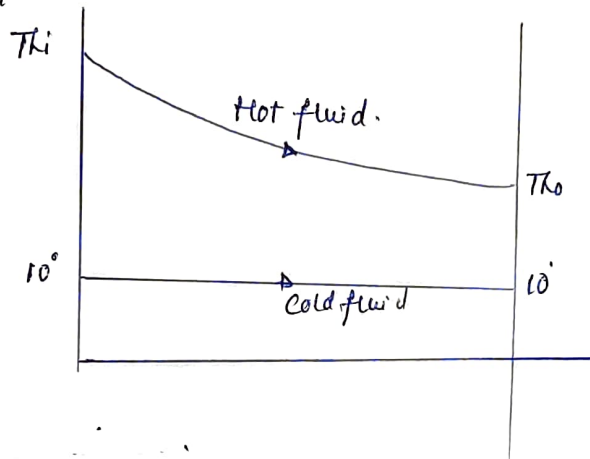 Thi
Hot fluid.
Tho
10°
10°
Cold fluid